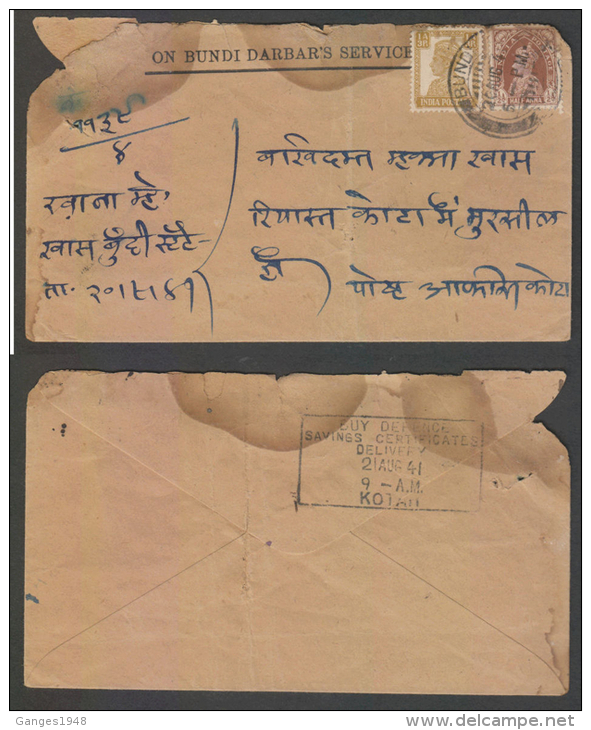 ON BUNDI DARBAR'S SERVICE
INDIA POSTAGE
HALF ANNA
BUNDI
AUG 41
P.M.
११३९
४
रवाना म्हे,
खास बुँदी स्टेट-
ता. २०।८।४१
बखिदमत म्हकमा खास
रियास्त कोटा में मुरसील
हो
पोस्ट आफीस कोटा
BUY DEFENCE
SAVINGS CERTIFICATES
DELIVERY
21 AUG 41
9 - A.M.
KOTAH
Ganges1948
www.delcampe.net